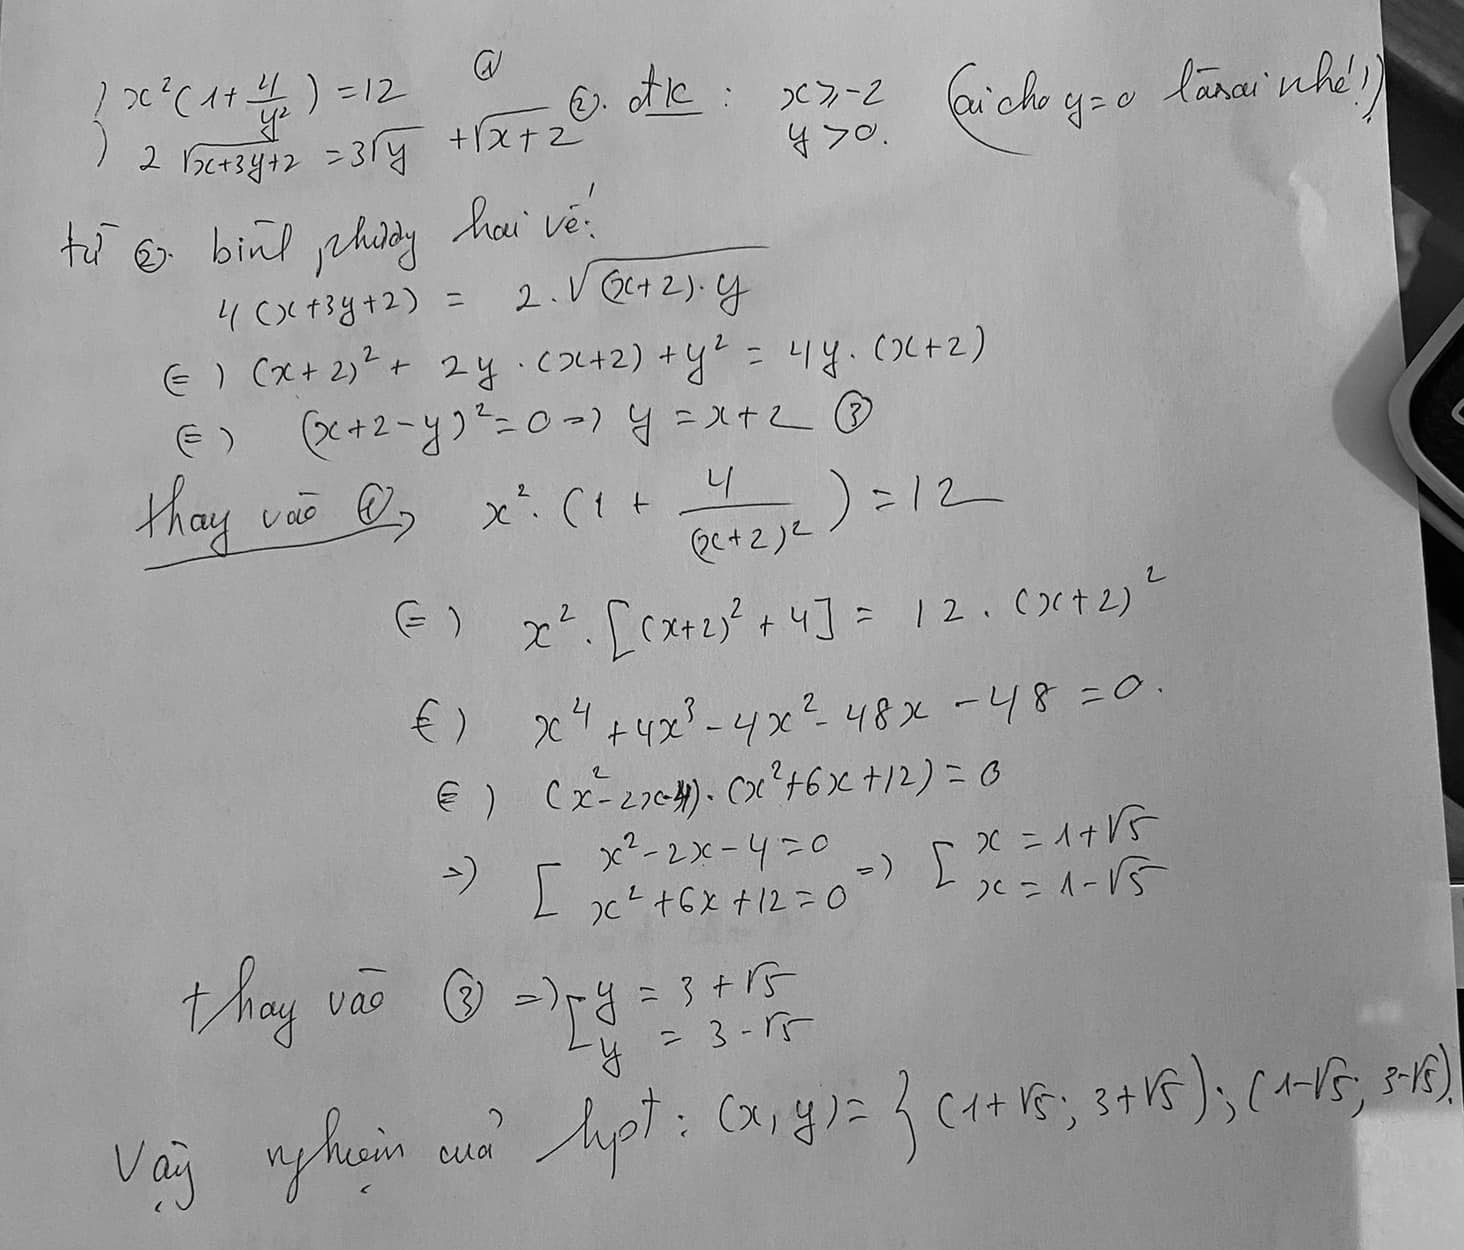 { x²(1+4/y²) = 12 ①
2√(x+3y+2) = 3√y + √(x+2) ②. đk : x ≥ -2 (ai cho y=0 là sai nhé!)
y > 0.
từ ②. bình phương hai vế:
4(x+3y+2) = 2.√((x+2).y)
(=) (x+2)² + 2y.(x+2) + y² = 4y.(x+2)
(=) (x+2-y)² = 0 => y = x+2 ③
thay vào ①, x².(1 + 4/(x+2)²) = 12
(=) x².[(x+2)²+4] = 12.(x+2)²
(=) x⁴ + 4x³ - 4x² - 48x - 48 = 0.
(=) (x²-2x-4).(x²+6x+12) = 0
=) [ x²-2x-4=0 =) [ x = 1+√5
x²+6x+12=0 x = 1-√5
thay vào ③ =) [ y = 3+√5
y = 3-√5
Vậy nghiệm của hpt : (x,y) = { (1+√5; 3+√5); (1-√5; 3-√5).